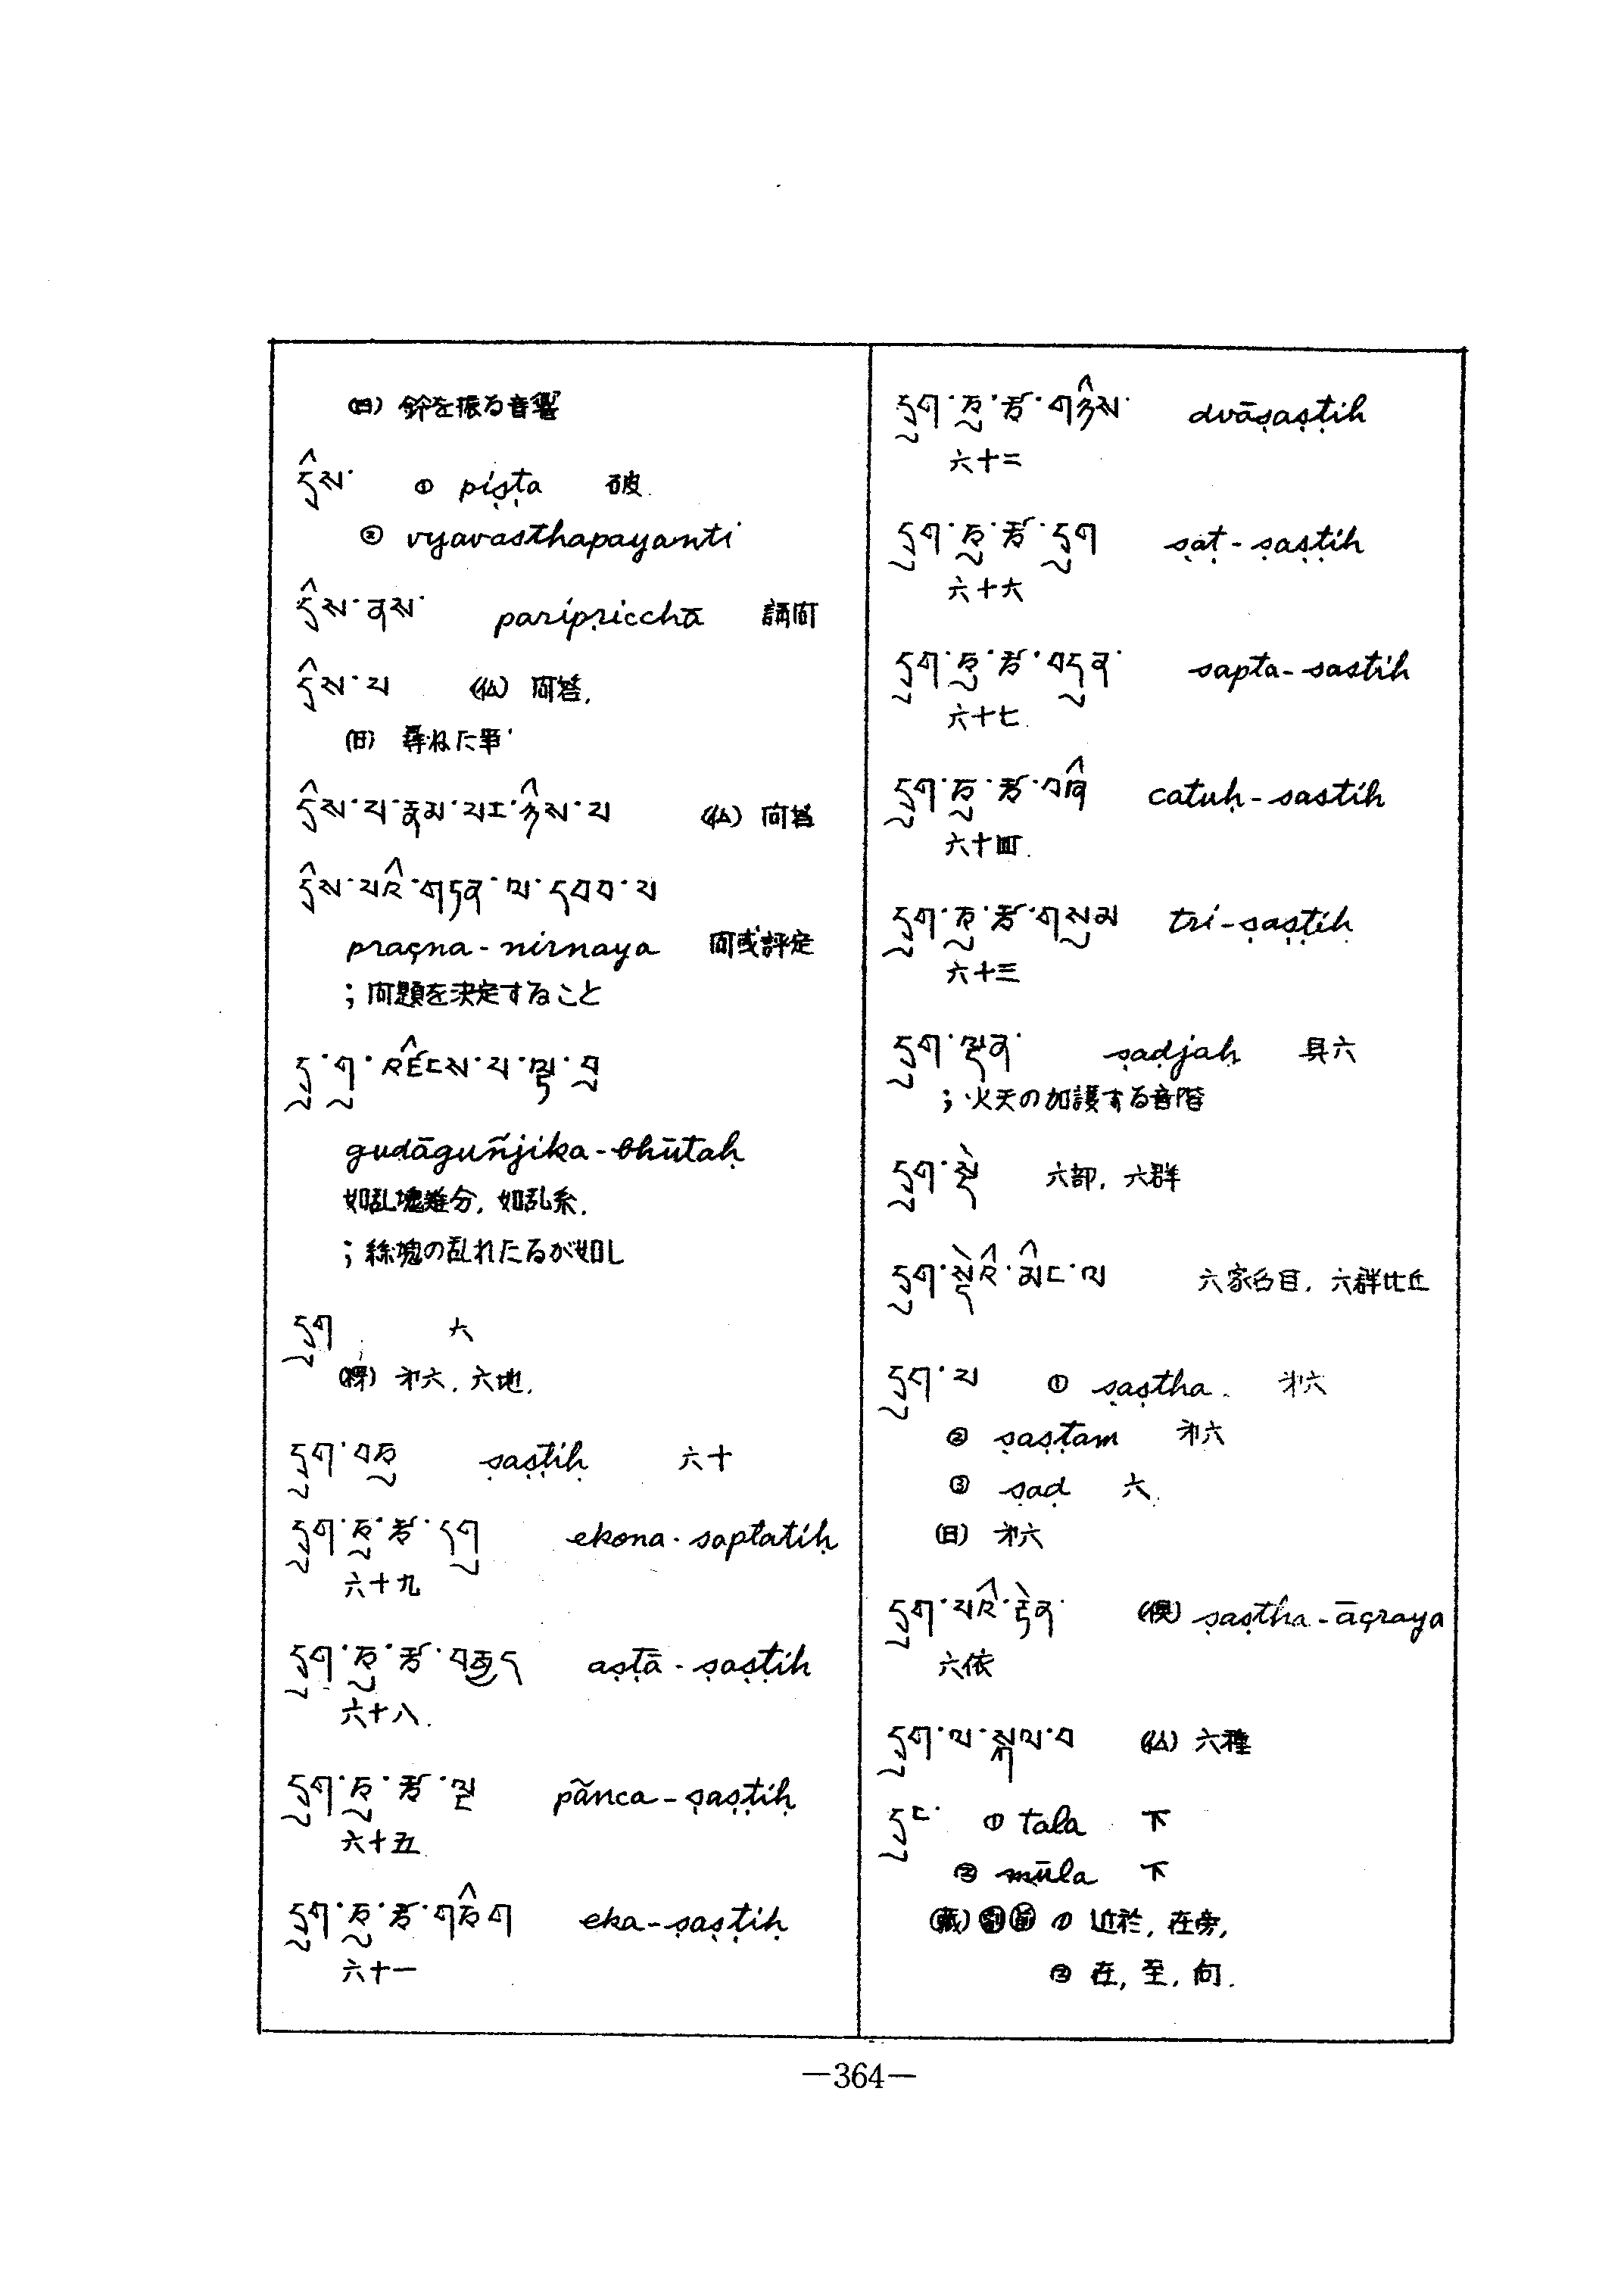 (日) 鈴を振る音響
དྲིས་ ① piṣṭa 破.
② vyavasthapayanti
དྲིས་ནས་ paripṛicchā 請問
དྲིས་པ (仏) 問答,
(日) 尋ねた事
དྲིས་པ་རྣམ་པར་ཉིས་པ (仏) 問答
དྲིས་པའི་གཏན་ལ་དབབ་པ
praçna-nirnaya 問或評定
; 問題を決定すること
དྲུ་གུ་འཛིངས་པ་ལྟ་བུ
guḍāguñjika-bhūtaḥ
如乱塊難分, 如乱糸.
; 絲塊の乱れたるが如し
དྲུག 六
㐧六, 六地.
དྲུག་བཅུ ṣaṣṭiḥ 六十
དྲུག་ཅུ་རྩ་དགུ ekona-saptatiḥ
六十九
དྲུག་ཅུ་རྩ་བརྒྱད aṣṭā-ṣaṣṭih
六十八.
དྲུག་ཅུ་རྩ་ལྔ pãnca-ṣaṣṭiḥ
六十五
དྲུག་ཅུ་རྩ་གཅིག eka-ṣaṣṭiḥ
六十一
དྲུག་ཅུ་རྩ་གཉིས་ dvāṣaṣṭih
六十二
དྲུག་ཅུ་རྩ་དྲུག ṣaṭ-ṣaṣṭih
六十六
དྲུག་ཅུ་རྩ་བདུན་ sapta-sastih
六十七.
དྲུག་ཅུ་རྩ་བཞི catuḥ-sastih
六十四.
དྲུག་ཅུ་རྩ་གསུམ tri-ṣaṣṭiḥ
六十三
དྲུག་ལྡན་ ṣaḍjaḥ 具六
; 火天の加護する音階
དྲུག་སྡེ 六部, 六群
དྲུག་སྡེའི་མིང་ལ 六家名目, 六群比丘
དྲུག་པ ① ṣaṣtha. 㐧六
② ṣaṣṭam 㐧六
③ ṣaḍ 六.
(日) 㐧六
དྲུག་པའི་རྟེན་ (倶) ṣaṣtha-āçraya
六依
དྲུག་ལ་སྐལ་བ (仏) 六種
དྲུང་ ① tala 下
② mūla 下
(蔵) 副 前 ① 近於, 在旁,
② 在, 至, 向.
—364—